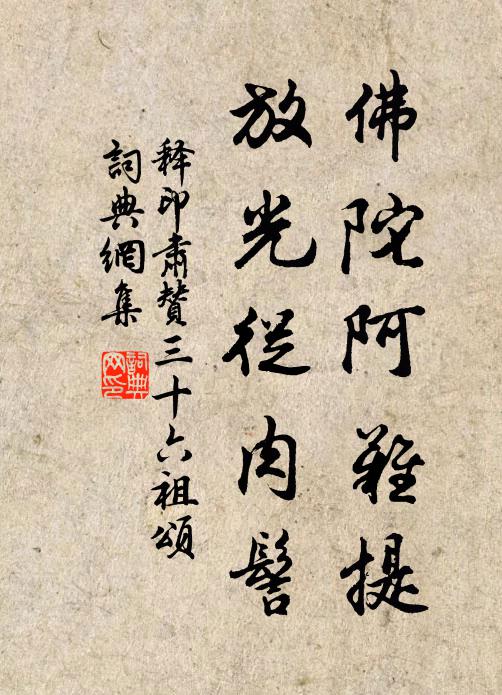 佛陀阿難提
放光從肉髻
释印肅贊三十六祖頌
詞典網集
詞典
网印